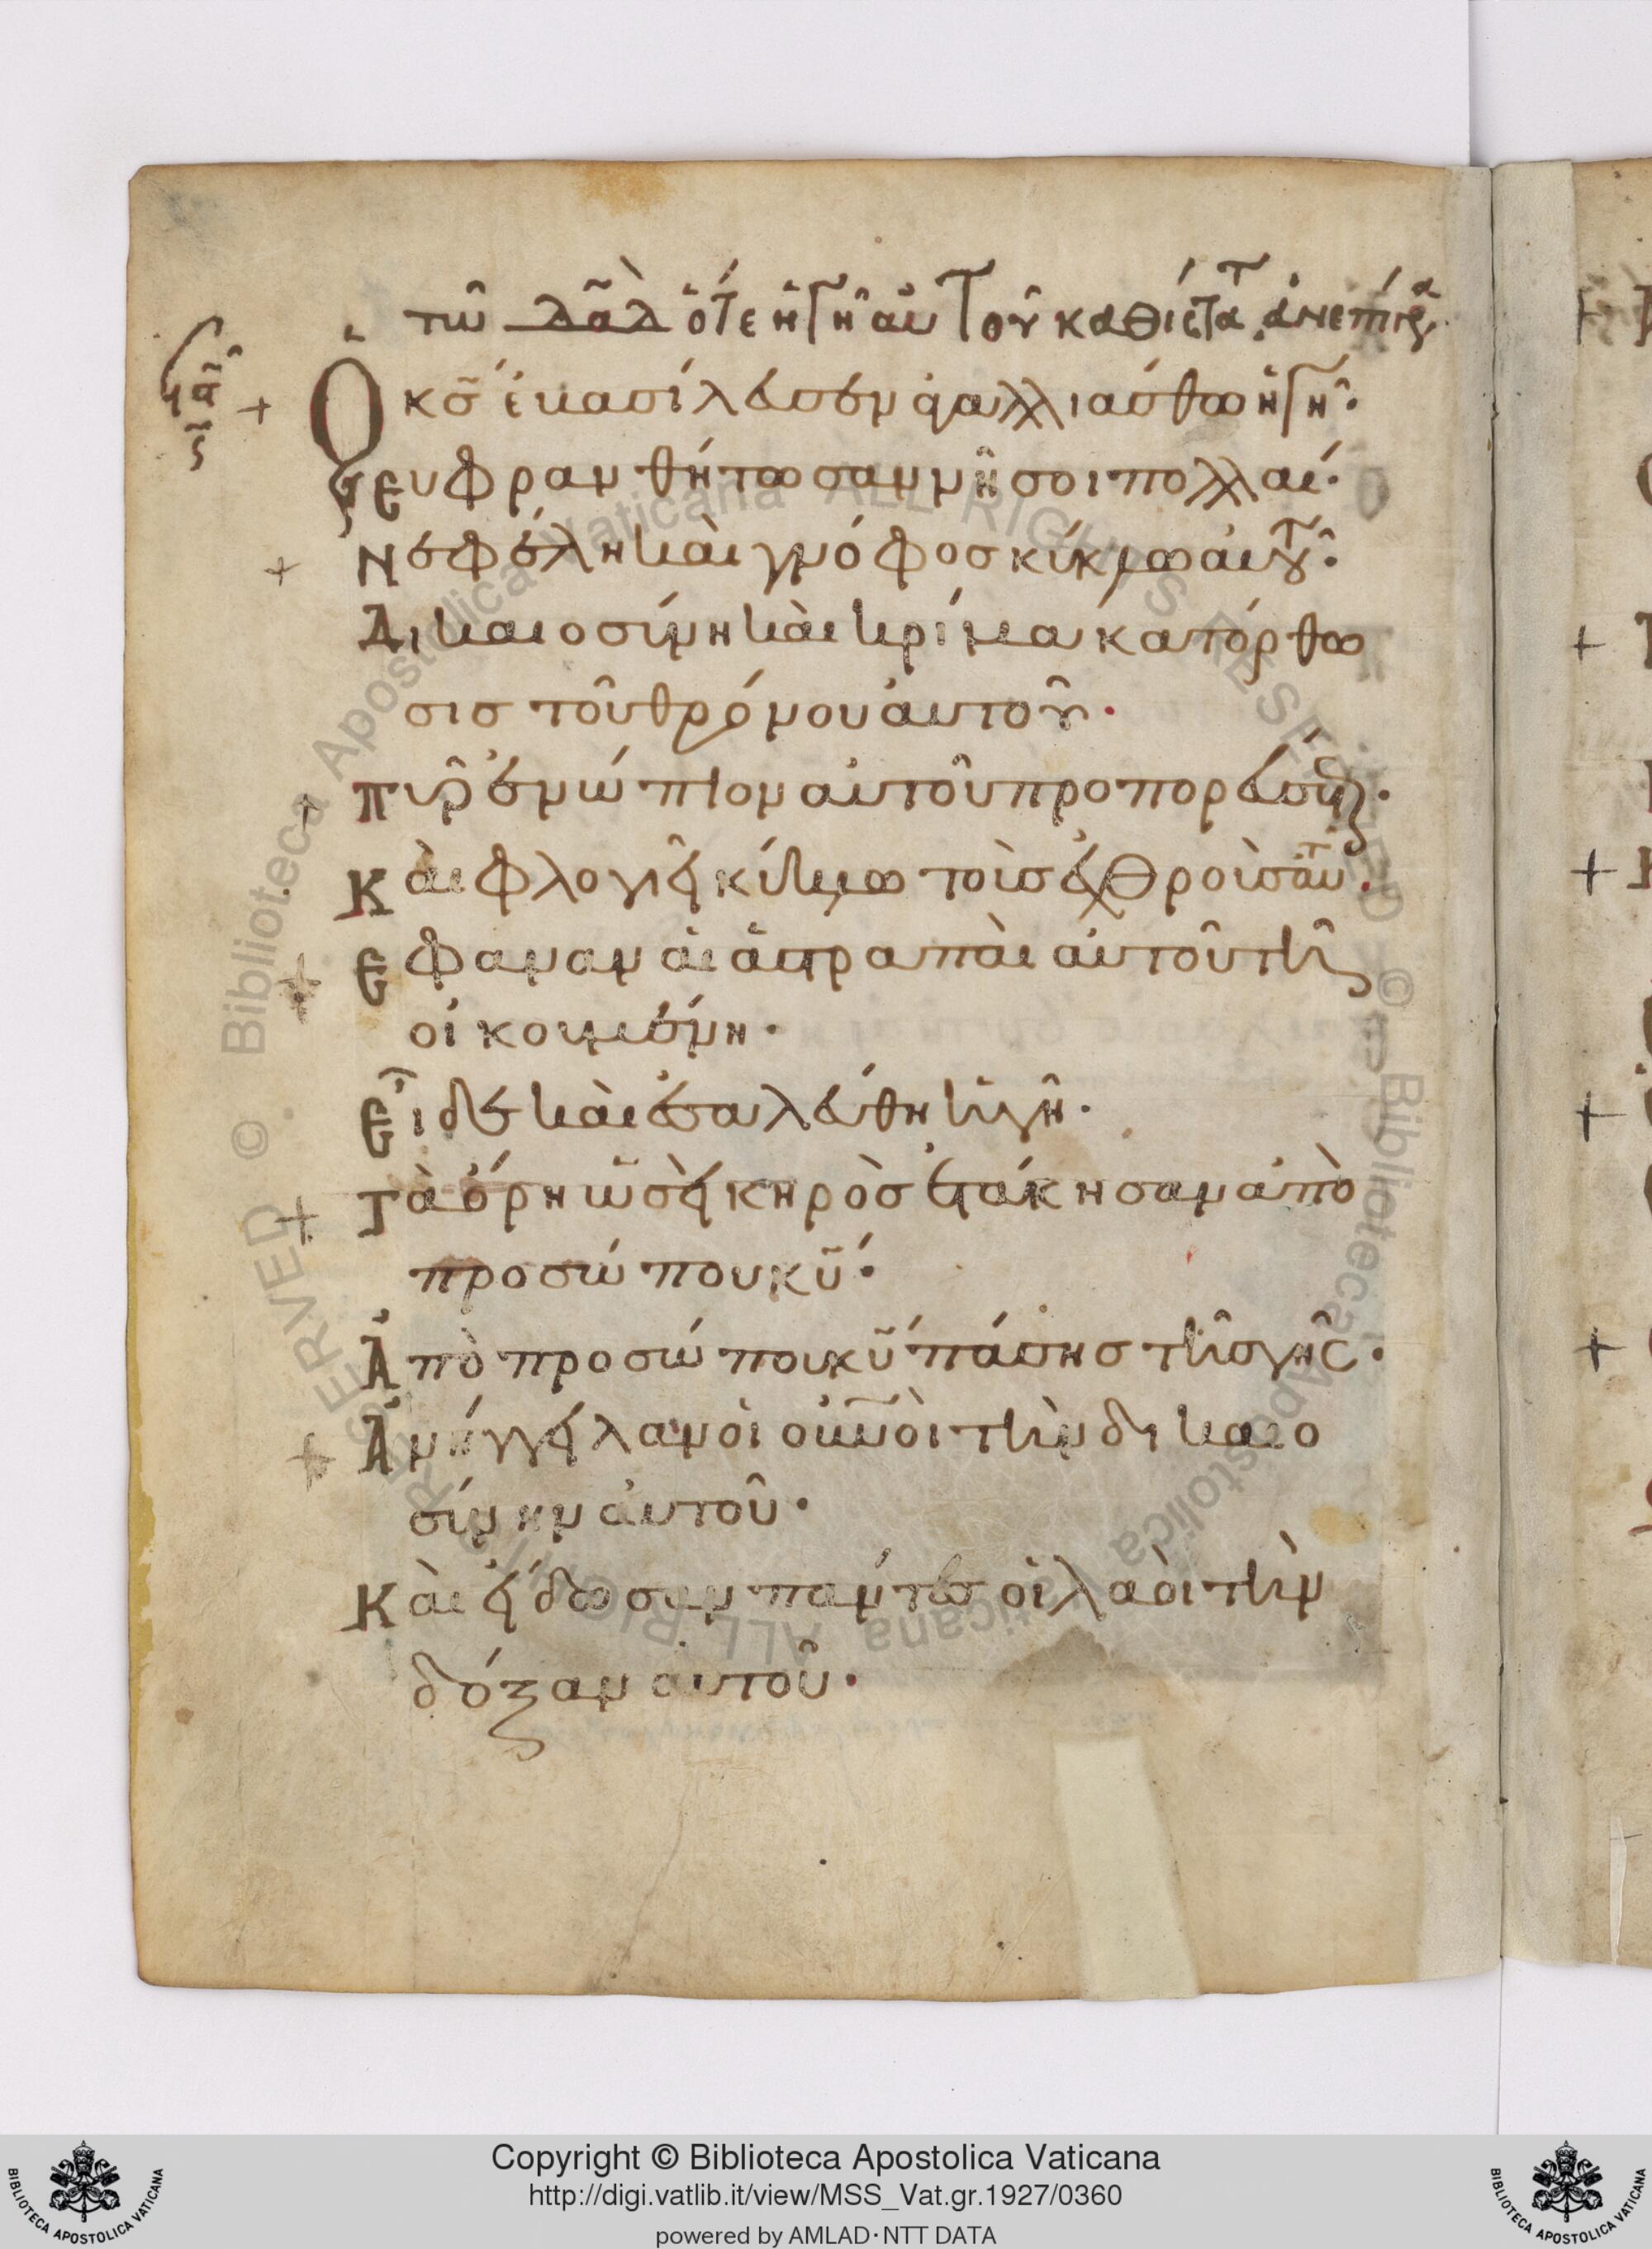 τῶ δᾶδ ὅτε ἡ γῆ αὐτοῦ καθίσταται ἀνεπίγρα
Ὁ κ̅ς̅ ἐβασίλευσεν ἀγαλλιάσθω ἡ γῆ·
εὐφρανθήτωσαν νῆσοι πολλαί·
Νεφέλη καὶ γνόφος κύκλω αὐτοῦ·
Δικαιοσύνη καὶ κρίμα κατόρθω
σις τοῦ θρόνου αὐτοῦ·
Πῦρ ἐνώπιον αὐτοῦ προπορεύσεται·
Καὶ φλογιεῖ κύκλω τοὺς ἐχθροὺς αὐτοῦ·
Ἔφαναν αἱ ἀστραπαὶ αὐτοῦ τῆ
οἰκουμένη·
Εἶδε καὶ ἐσαλεύθη ἡ γῆ·
Τὰ ὄρη ὡσεὶ κηρὸς ἐτάκησαν ἀπὸ
προσώπου κ̅υ̅·
Ἀπὸ προσώπου κ̅υ̅ πάσης τῆς γῆς·
Ἀνήγγειλαν οἱ οὐ̅νοὶ τὴν δικαιο
σύνην αὐτοῦ·
Καὶ εἴδωσαν πάντες οἱ λαοὶ τὴν
δόξαν αὐτοῦ·
Copyright © Biblioteca Apostolica Vaticana
http://digi.vatlib.it/view/MSS_Vat.gr.1927/0360
powered by AMLAD·NTT DATA
BIBLIOTECA APOSTOLICA VATICANA
BIBLIOTECA APOSTOLICA VATICANA